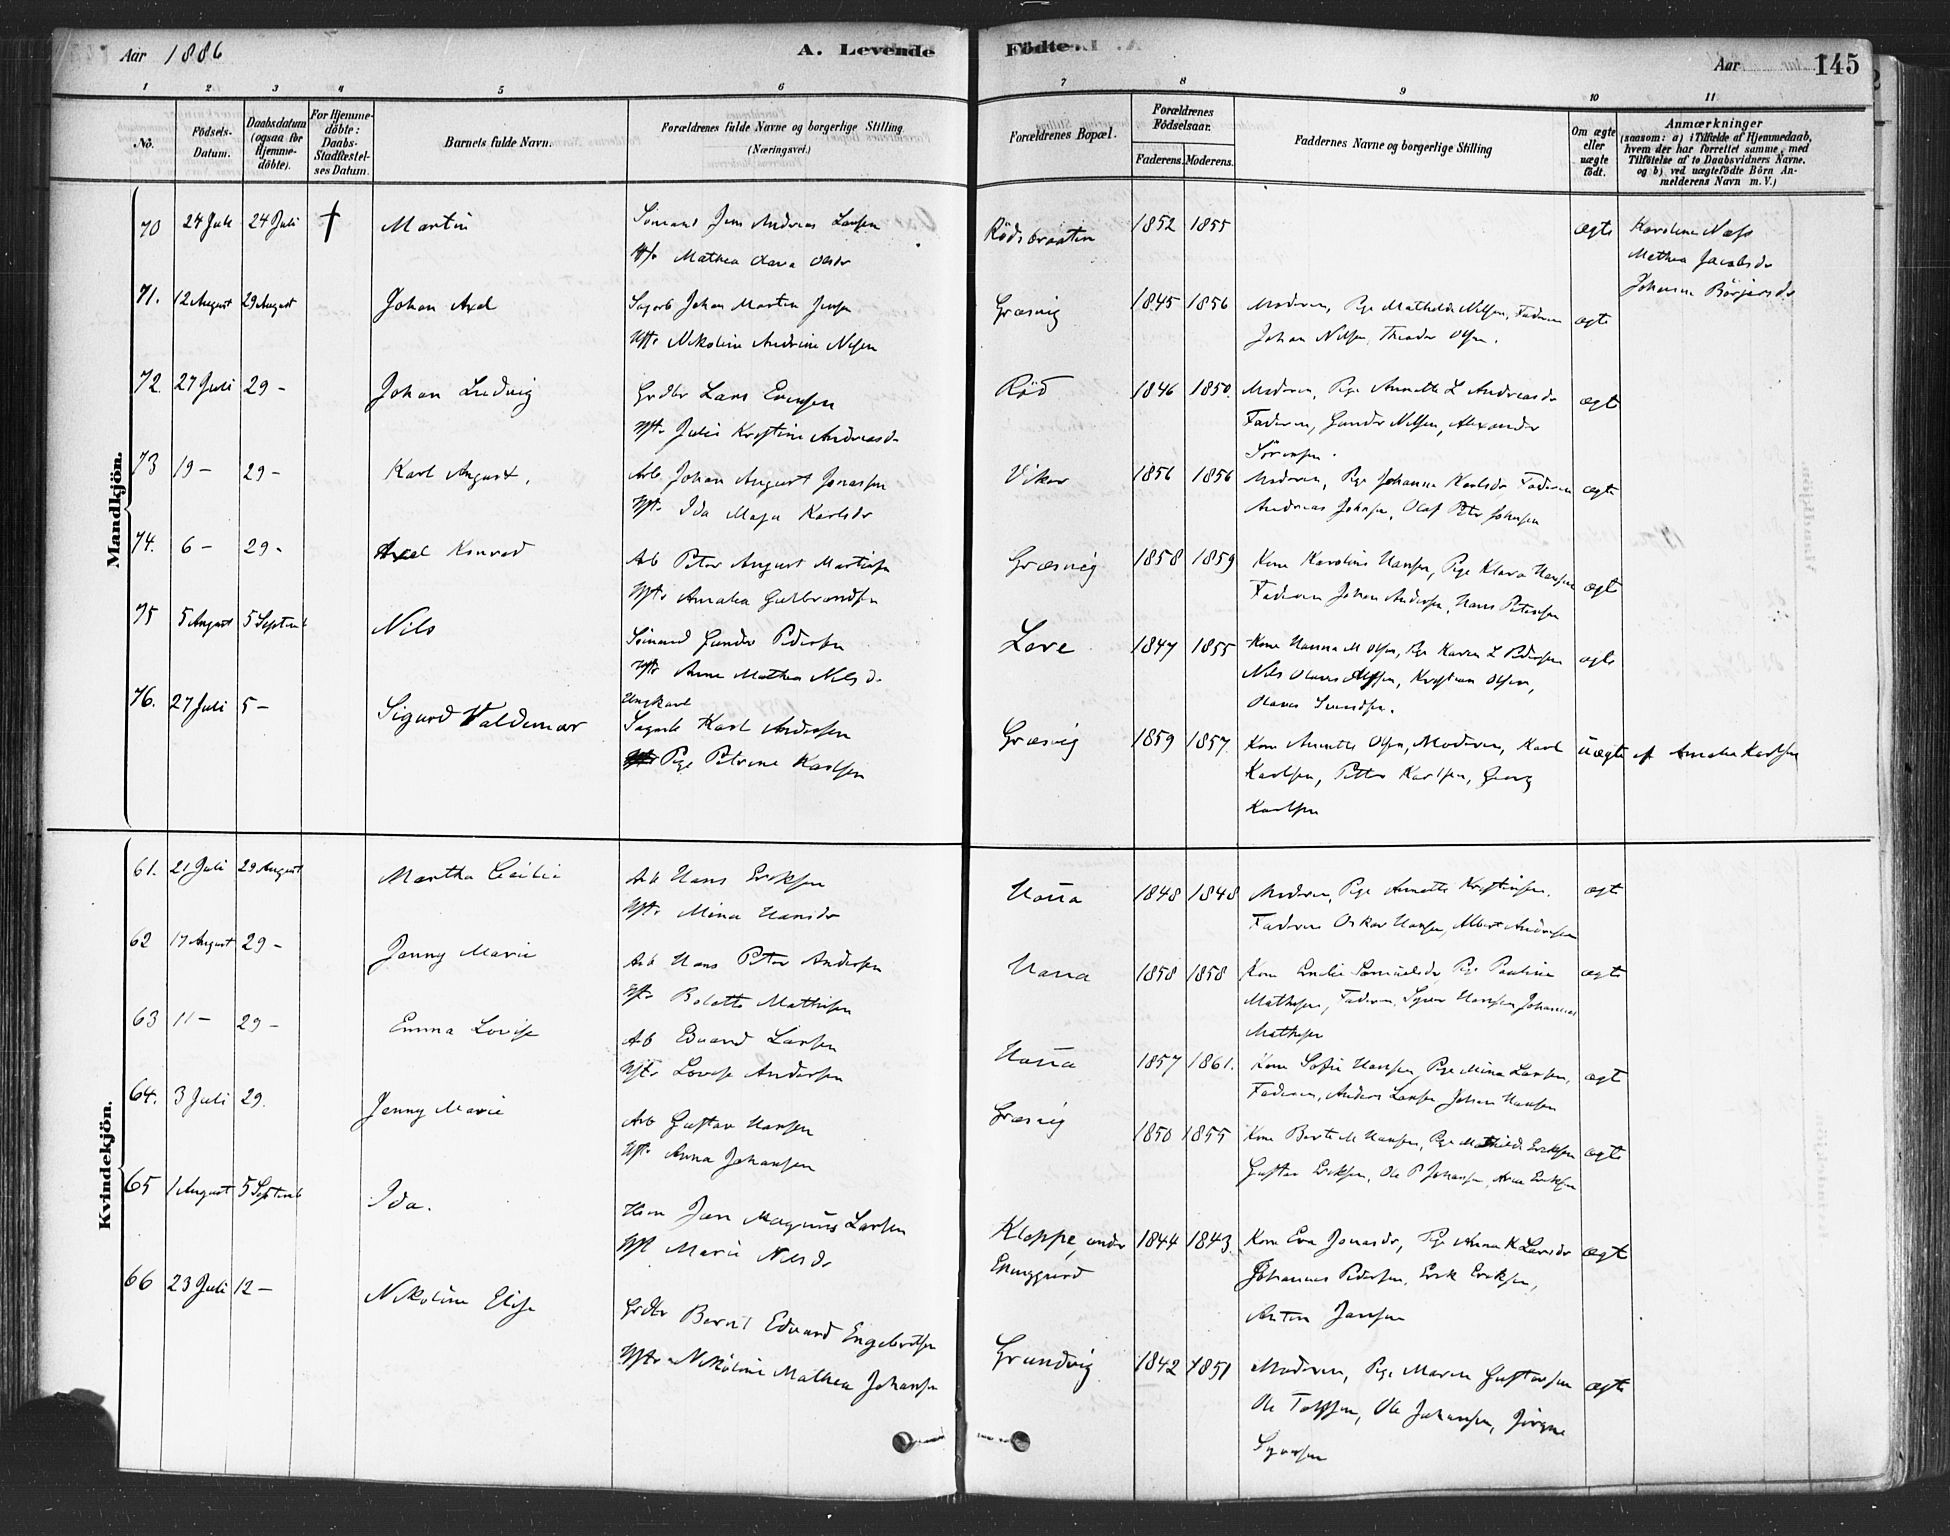 Aar 1886
A. Levende Födte.
Aar
145
1 2 3 4 5 6 7 8 9 10 11
No.
Födsels-Datum.
Daabsdatum (ogsaa for Hjemme-döbte).
For Hjemme-döbte: Daabs-Stadfæstel-ses Datum.
Barnets fulde Navn.
Forældrenes fulde Navne og borgerlige Stilling (Næringsvei.)
Forældrenes Bopæl.
Forældrenes Födselsaar.
Faderens. Moderens.
Faddernes Navne og borgerlige Stilling
Om ægte eller uægte födt.
Anmærkninger
(saasom: a) i Tilfælde af Hjemmedaab, hvem der har forrettet samme, med Tilföielse af to Daabsvidners Navne. og b) ved uægtefödte Börn Anmelderens Navn m. V.)
Mandkjön.
70 24 Juli 24 Juli † Martin Sömand Jens Andreas Larsen Rödsbraaten 1852 1855 ægte Karoline Næss
Hst. Mathea Olava Olsdr Mathea Jacobsdr
Johanna Börjersdr
71. 12 August 29 August Johan Axel Sagarb Johan Martin Jensen Græsvig 1845 1856 Moderen, Pige Mathilde Nilsen, Faderen ægte
Hst. Nikoline Andrine Nilsen Johan Nilsen, Theodor Olsen.
72. 27 Juli 29 - Johan Ludvig Grdbr Lars Evensen Röd 1846 1850. Moderen, Pige Annette L Andreasdr ægt
Hst. Julie Kristine Andreasdr Faderen, Gunder Nilsen, Alexander
Sörensen.
73 19 - 29 - Karl August. Arb. Johan August Jonassen Viker 1856 1856 Moderen, Pige Johanna Karlsdr Faderen ægte
Hst. Ida Maja Karlsdr Andreas Johnsen, Olaf Petr Johnsen
74. 6 - 29 - Axel Konrad Arb Petter August Martinsen Græsvig 1858 1859 Kone Karoline Hansen, Pige Klara Hansen ægt
Hst. Amalia Gulbrandsen Faderen Johan Andersen, Hans Petersen
75 5 August 5 Septemb Nils Sömand Gunder Pedersen Lere 1847 1855 Kone Hanna M Olsen, Pige Karen L Pedersen ægte
Hst. Anne Mathea Nilsdr Nils Olaves Olsen, Kristian Olsen,
Olaves Svendsen.
76. 27 Juli 5 - Sigurd Valdemar Ungkarl
Sagarb Karl Andersen Græsvig 1859 1857. Kone Annette Olsen, Moderen, Karl uægte af Amalia Karlsen
Pige Petrine Karlsen Karlsen, Petter Karlsen, Georg
Karlsen
Kvindekjön.
61. 21 Juli 29 August Martha Cecilie Arb Hans Eriksen Hauna 1848 1848 Moderen, Pige Annette Kristiansen. ægt
Hst. Mina Hansdr Faderen Oskar Hansen, Albert Andersen
62 17 August 29 - Jenny Marie Arb Hans Petter Andersen Hauna 1858 1858 Kone Emilie Samuelsdr, Pige Pauline ægte
Hst. Bolette Mathisen Mathisen, Faderen, Syver Hansen Johannes
Mathisen
63 11 - 29 - Emma Lovise Arb Edvard Larsen Hauna 1857 1861. Kone Sofie Hansen, Pige Mina Larsen, ægt
Hst. Lovise Andersen Faderen, Anders Larsen Johan Hansen
64. 3 Juli 29. Jenny Marie Arb Gustav Hansen Græsvig 1850 1855 Kone Berte M Hansen, Pige Mathilde Eriksen ægte
Hst. Anna Johansen Gustav Eriksen, Ole P Johansen,
65 1 August 5 Septemb Ida. Jan Magnus Larsen Kloppe, under 1844 1843 Kone Eva Jonasdr, Pige Anna K Larsdr ægt
Hst Marie Nilsdr Johannes Pedersen, Erik Eriksen,
Anton Jansen
66 23 Juli 12 - Nikoline Elise Grdbr Bernt Edvard Engebretsen Grundvig 1842 1851 Moderen, Pige Maren Gustavsen ægte
Hst. Nikoline Mathea Johansen Ole Johansen, Jörgen
Syversen